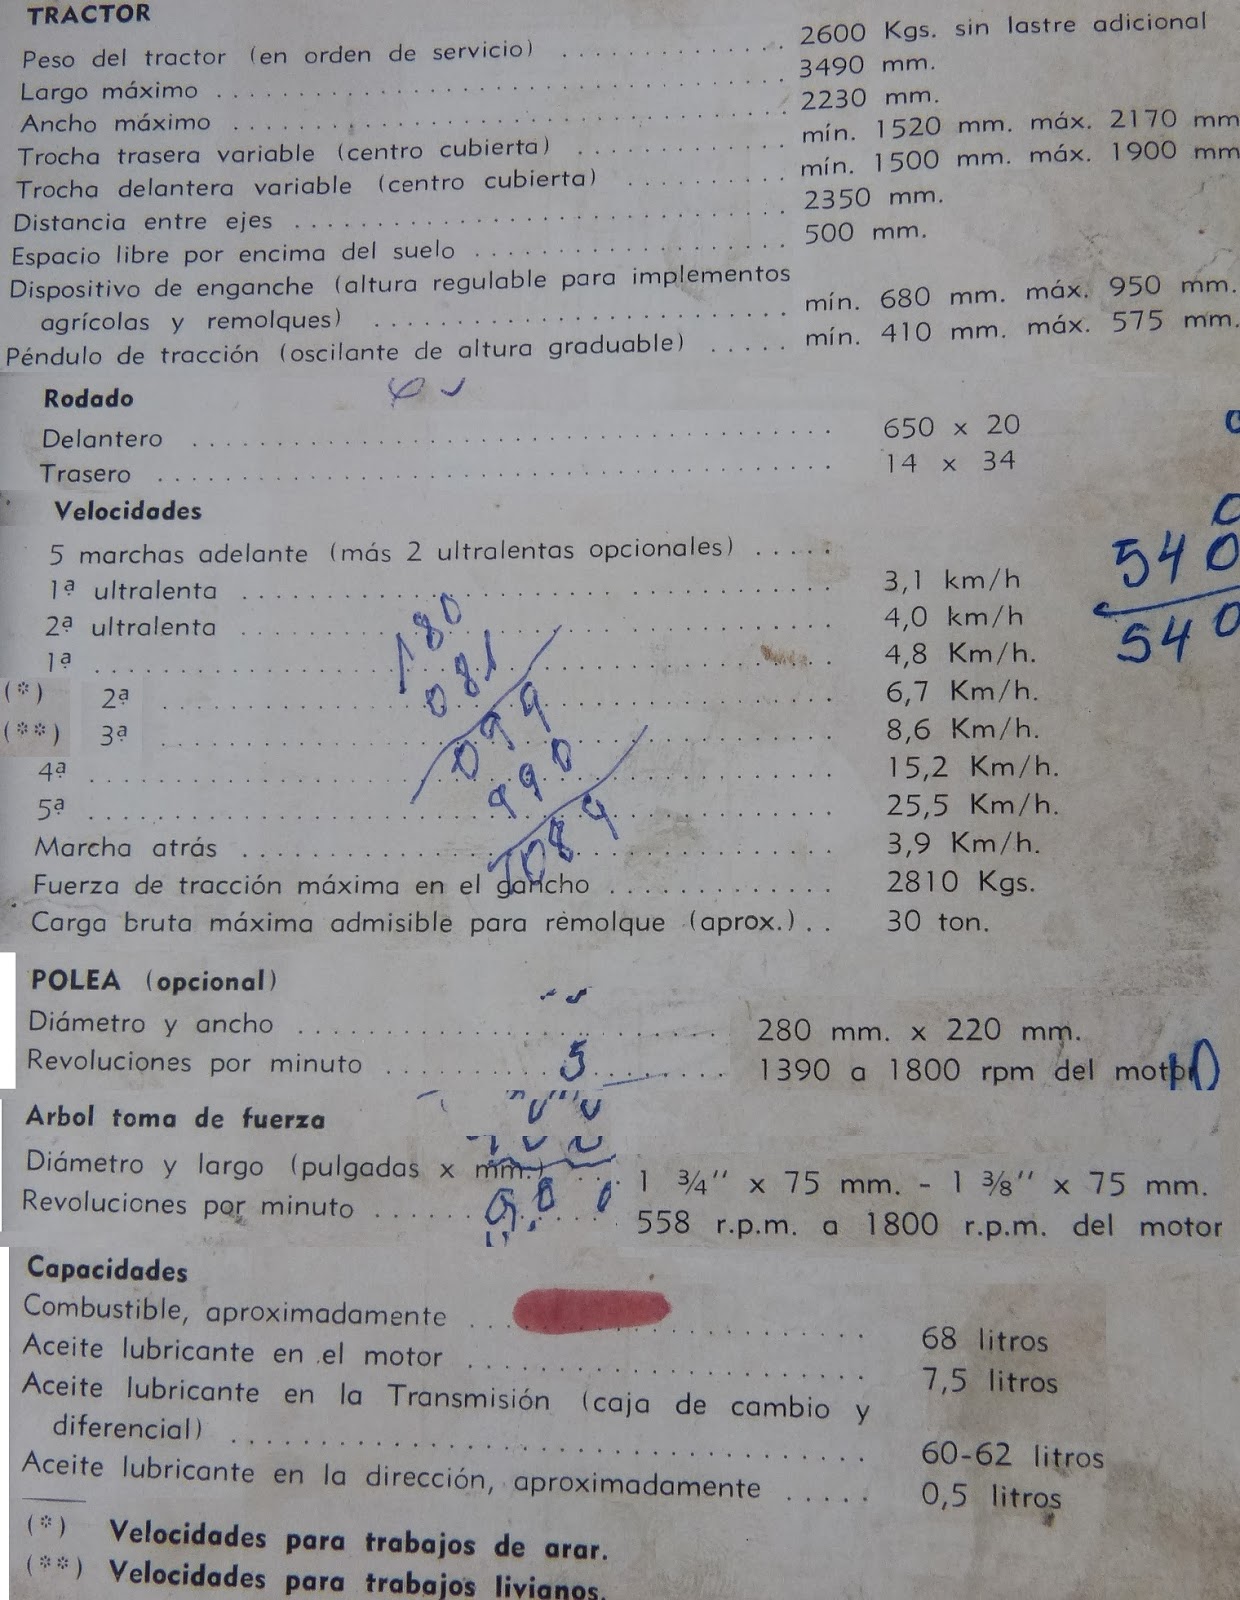 TRACTOR
Peso del tractor (en orden de servicio) .............. 2600 Kgs. sin lastre adicional
Largo máximo .............. 3490 mm.
Ancho máximo .............. 2230 mm.
Trocha trasera variable (centro cubierta) .............. mín. 1520 mm. máx. 2170 mm
Trocha delantera variable (centro cubierta) .............. mín. 1500 mm. máx. 1900 mm
Distancia entre ejes .............. 2350 mm.
Espacio libre por encima del suelo .............. 500 mm.
Dispositivo de enganche (altura regulable para implementos
agrícolas y remolques) .............. mín. 680 mm. máx. 950 mm.
Péndulo de tracción (oscilante de altura graduable) ..... mín. 410 mm. máx. 575 mm.
Rodado
Delantero .............. 650 x 20
Trasero .............. 14 x 34
Velocidades
5 marchas adelante (más 2 ultralentas opcionales) .....
1ª ultralenta .............. 3,1 km/h
2ª ultralenta .............. 4,0 km/h
1ª .............. 4,8 Km/h.
(*) 2ª .............. 6,7 Km/h.
(**) 3ª .............. 8,6 Km/h.
4ª .............. 15,2 Km/h.
5ª .............. 25,5 Km/h.
Marcha atrás .............. 3,9 Km/h.
Fuerza de tracción máxima en el gancho .............. 2810 Kgs.
Carga bruta máxima admisible para remolque (aprox.) .. 30 ton.
540
540
180
081
099
990
1089
POLEA (opcional)
Diámetro y ancho .............. 280 mm. x 220 mm.
Revoluciones por minuto .............. 1390 a 1800 rpm del motor
5
Arbol toma de fuerza
Diámetro y largo (pulgadas x mm.) .... 1 ¾" x 75 mm. - 1 ⅜" x 75 mm.
Revoluciones por minuto .............. 558 r.p.m. a 1800 r.p.m. del motor
Capacidades
Combustible, aproximadamente .............. 68 litros
Aceite lubricante en el motor .............. 7,5 litros
Aceite lubricante en la Transmisión (caja de cambio y
diferencial) .............. 60-62 litros
Aceite lubricante en la dirección, aproximadamente ..... 0,5 litros
(*) Velocidades para trabajos de arar.
(**) Velocidades para trabajos livianos.